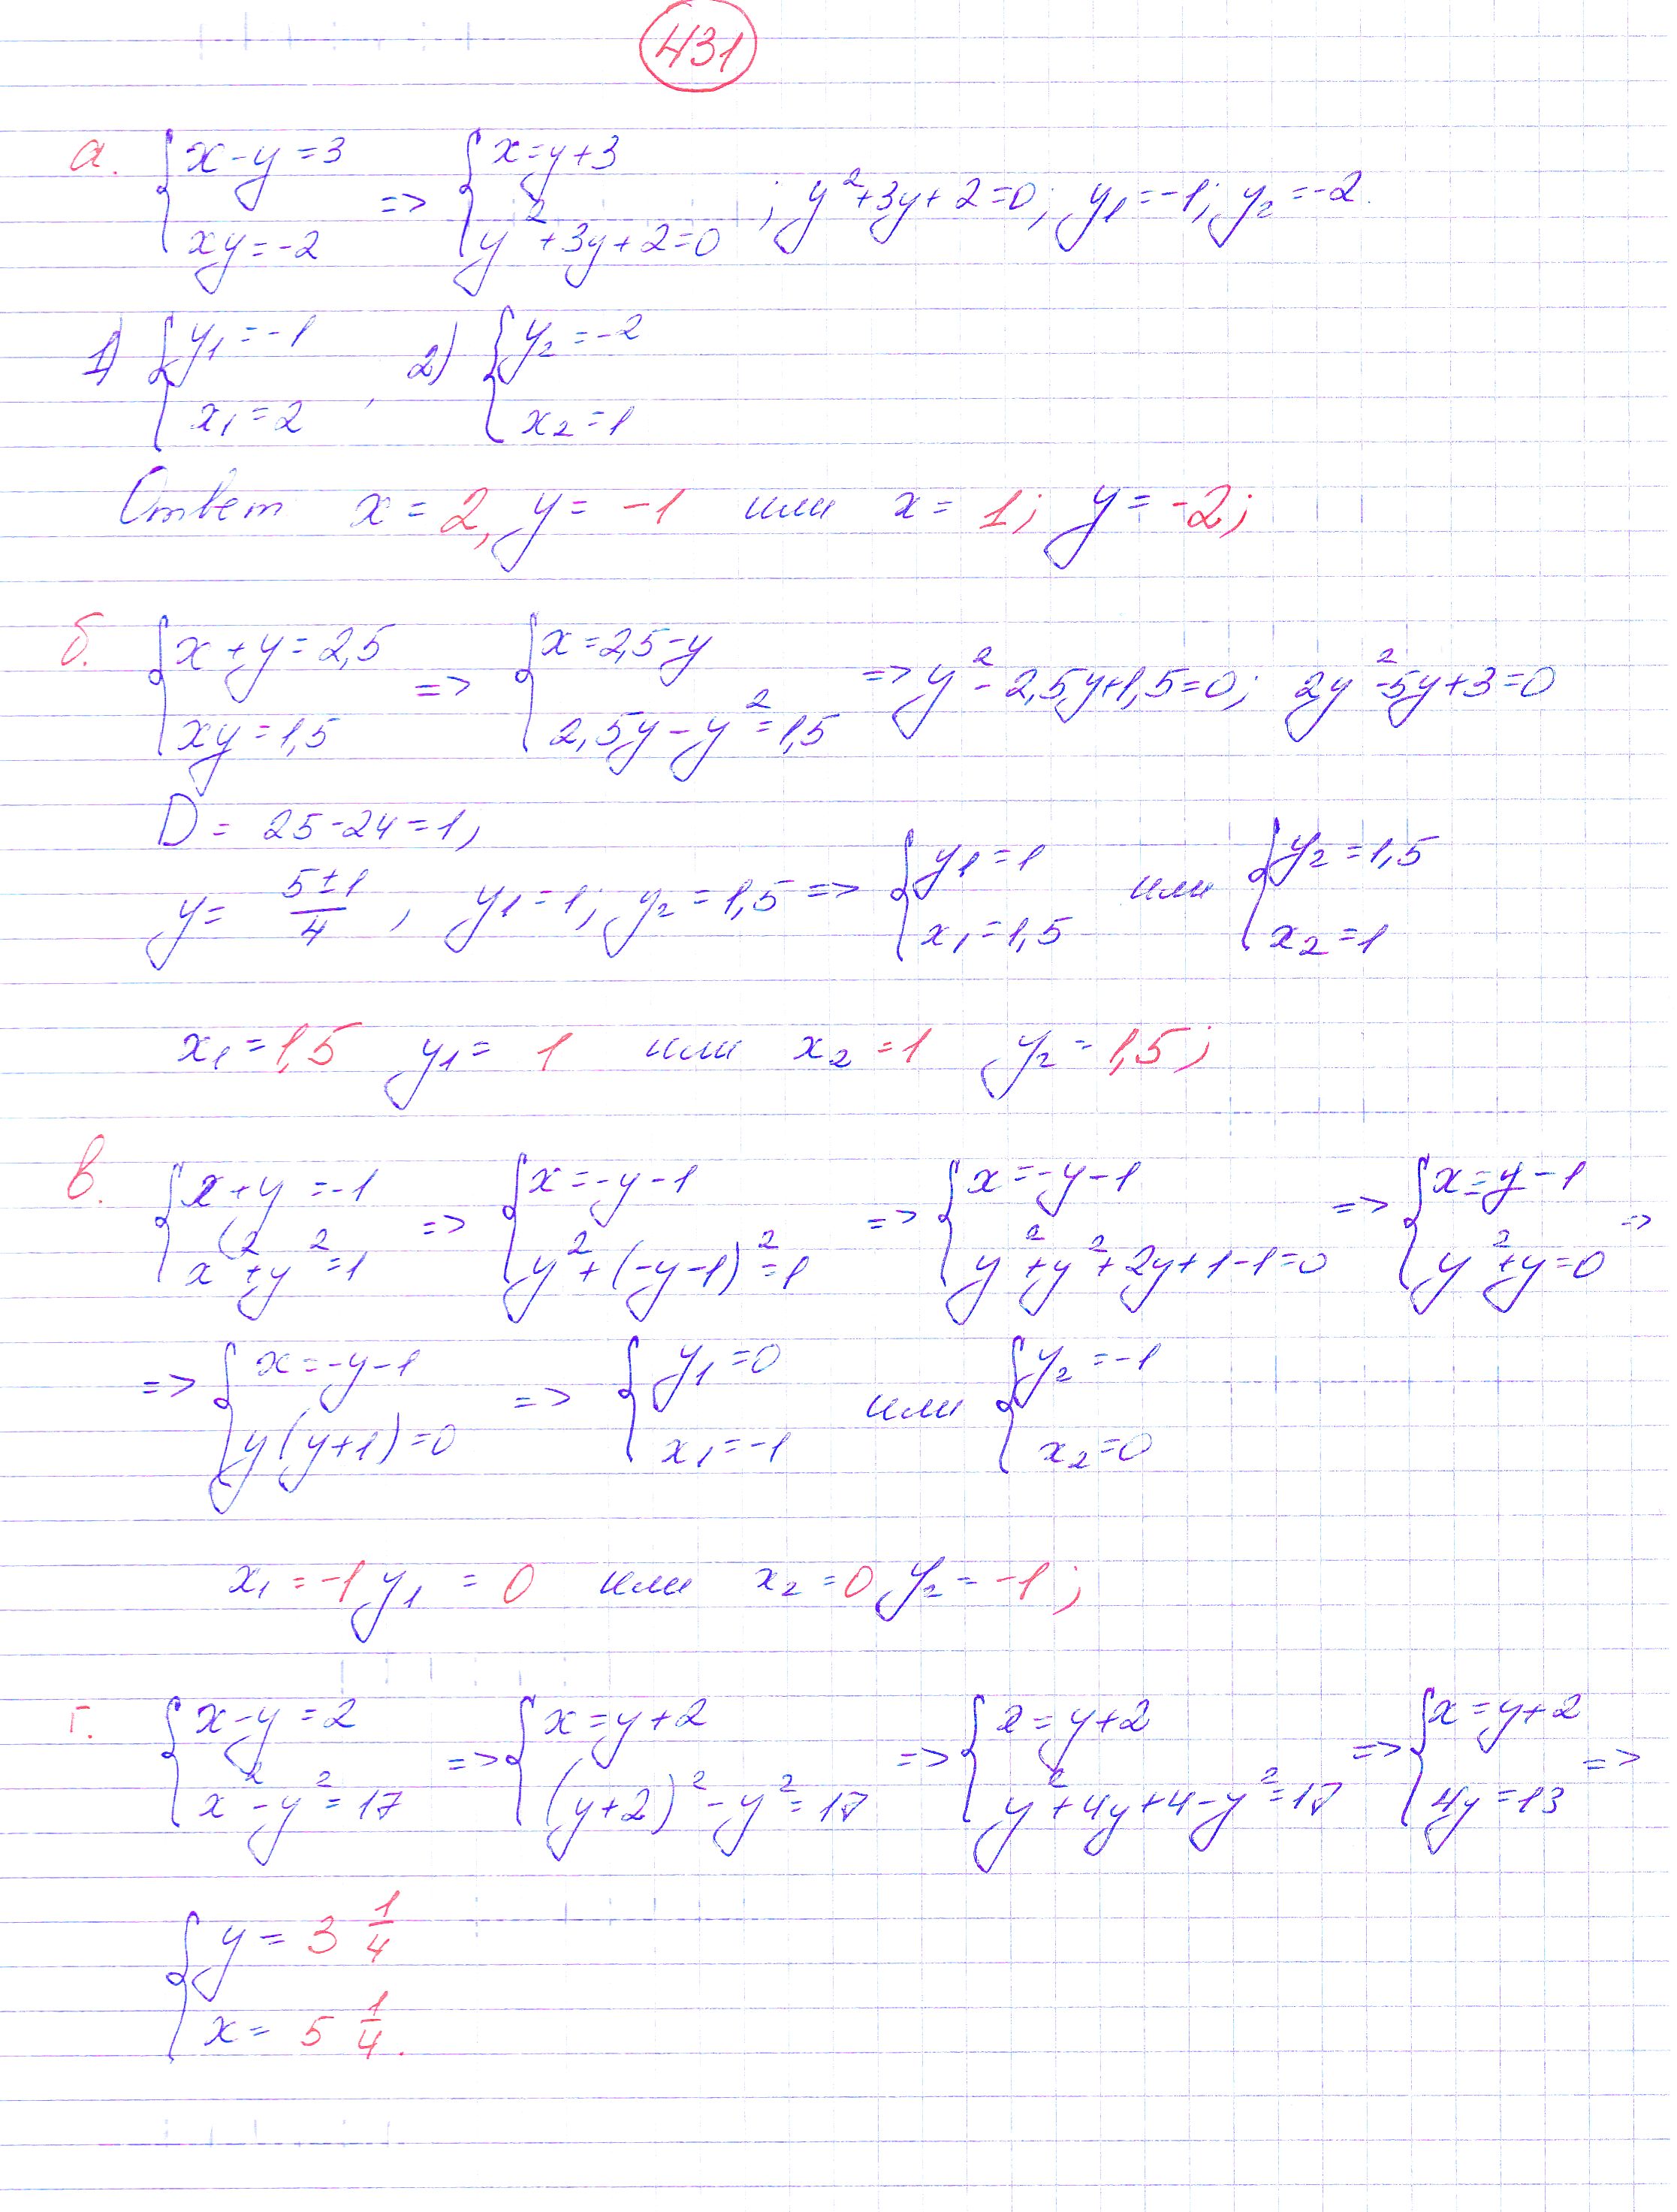 431
а. { x-y=3 ; xy=-2 => { x=y+3 ; y²+3y+2=0 ; y²+3y+2=0; y₁=-1; y₂=-2.
1) { y₁=-1 ; x₁=2 , 2) { y₂=-2 ; x₂=1
Ответ x=2, y=-1 или x=1; y=-2;
б. { x+y=2,5 ; xy=1,5 => { x=2,5-y ; 2,5y-y²=1,5 => y²-2,5y+1,5=0; 2y²-5y+3=0
D=25-24=1,
y=(5±1)/4, y₁=1; y₂=1,5 => { y₁=1 ; x₁=1,5 или { y₂=1,5 ; x₂=1
x₁=1,5 y₁=1 или x₂=1 y₂=1,5;
в. { x+y=-1 ; x²+y²=1 => { x=-y-1 ; y²+(-y-1)²=1 => { x=-y-1 ; y²+y²+2y+1-1=0 => { x=-y-1 ; y²+y=0 =>
=> { x=-y-1 ; y(y+1)=0 => { y₁=0 ; x₁=-1 или { y₂=-1 ; x₂=0
x₁=-1 y₁=0 или x₂=0, y₂=-1;
г. { x-y=2 ; x²-y²=17 => { x=y+2 ; (y+2)²-y²=17 => { x=y+2 ; y²+4y+4-y²=17 => { x=y+2 ; 4y=13 =>
{ y=3 1/4
x=5 1/4.